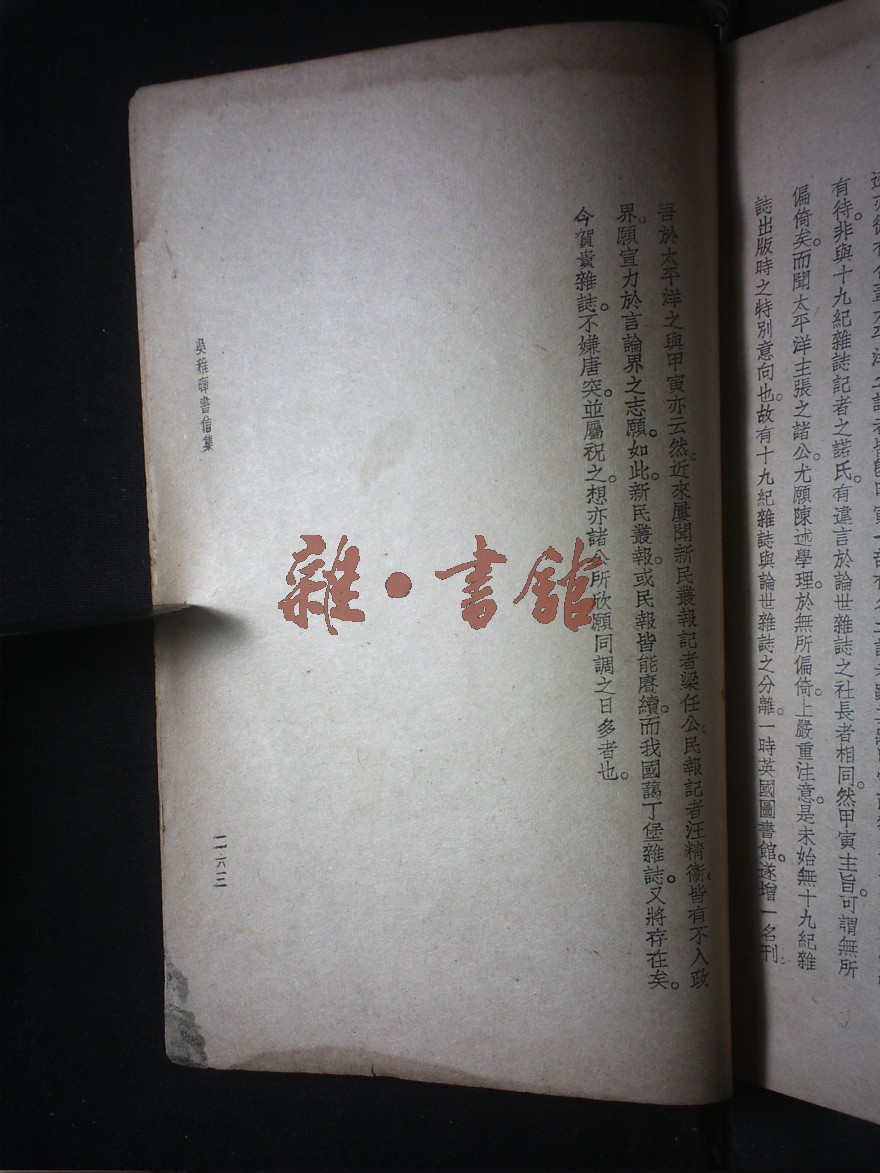 有待。非與十九紀雜誌記者之諾氏有違言於論世雜誌之社長者相同。然甲寅主旨可謂無所
偏倚矣。而聞太平洋主張之諸公。尤願陳述學理。於無所偏倚上嚴重注意。是未始無十九紀雜
誌出版時之特別意向也。故有十九紀雜誌與論世雜誌之分離。一時英國圖書館。遂增一名刊。
吾於太平洋之與甲寅亦云然。近來屢聞新民叢報記者梁任公。民報記者汪精衛。皆有不入政
界。願宣力於言論界之志願。如此。新民叢報。或民報皆能賡續。而我國藹丁堡雜誌。又將存在矣。
今賀貴雜誌。不嫌唐突。並屬祝之。想亦諸公所欣願同調之日多者也。
吳稚暉書信集
二六三
雜·書館